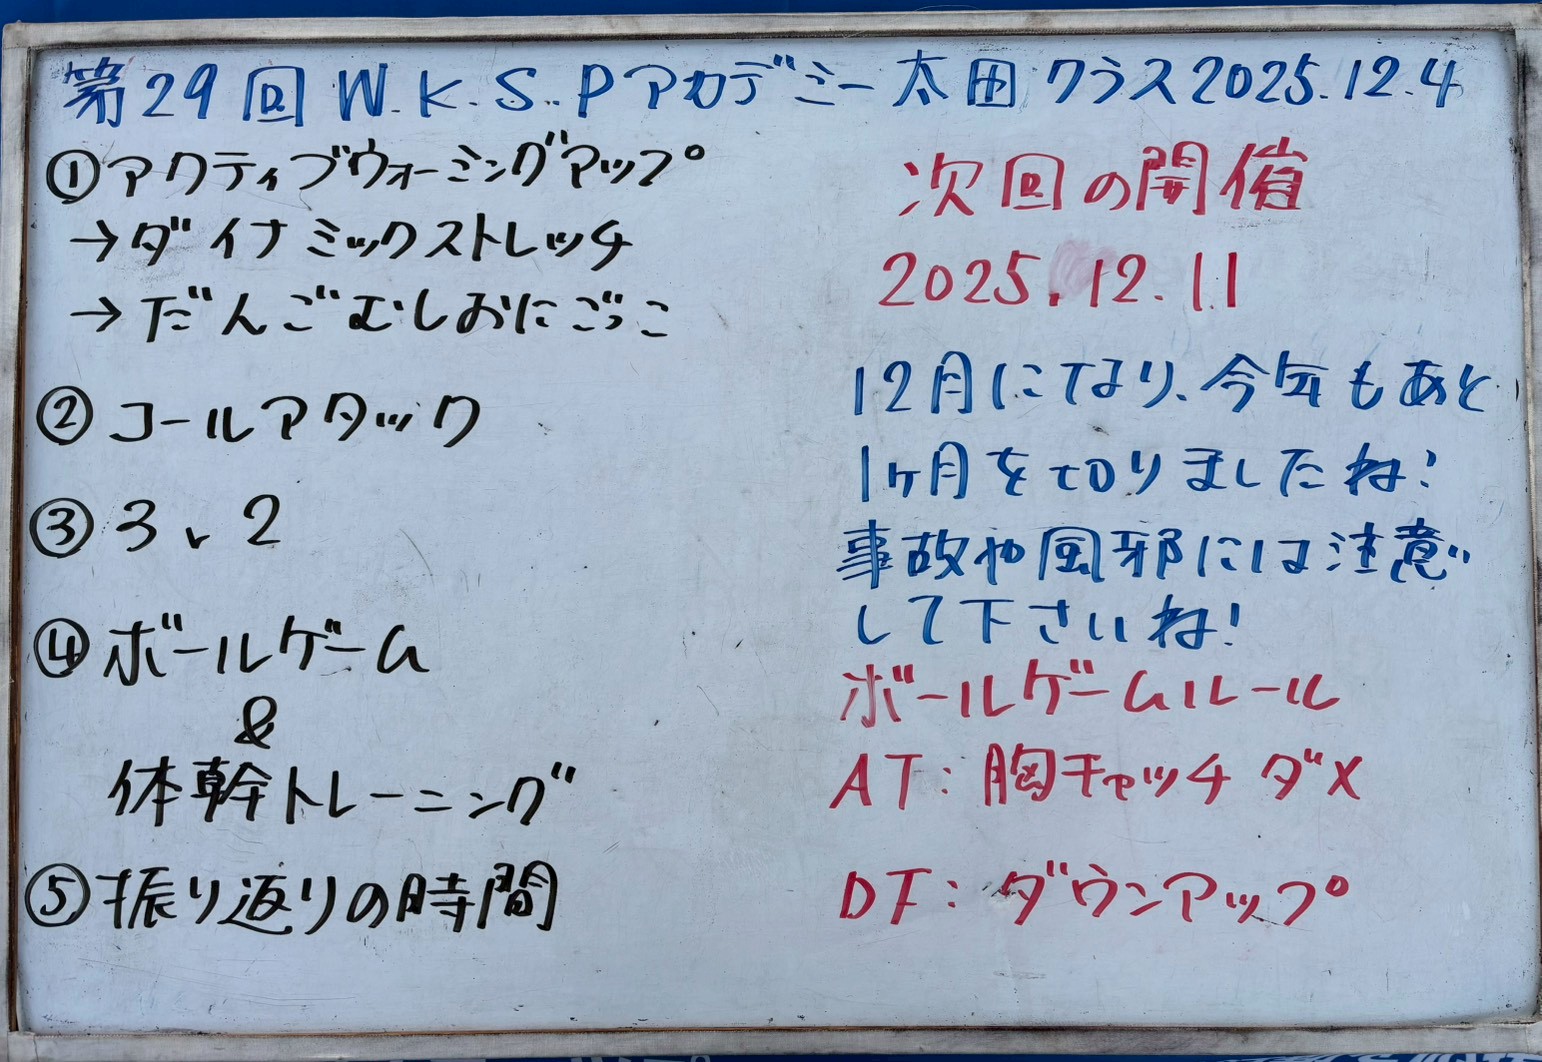 第29回 W.K.S.Pアカデミー太田クラス2025.12.4
①アクティブウォーミングアップ
→ダイナミックストレッチ
→だんごむしおにごっこ
②コールアタック
③3v2
④ボールゲーム
&
体幹トレーニング
⑤振り返りの時間
次回の開催
2025.12.11
12月になり、今年もあと
1ヶ月を切りましたね!
事故や風邪には注意
して下さいね!
ボールゲームルール
AT:胸キャッチダメ
DF:ダウンアップ